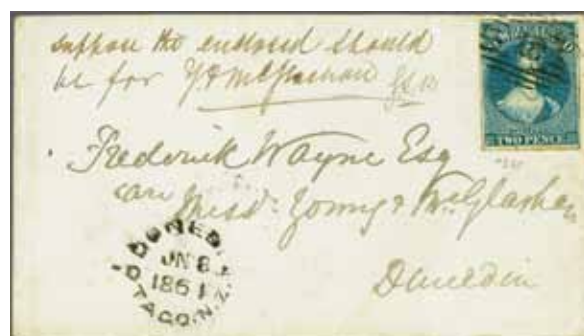 suppose the enclosed should
be for
NEW ZEALAND
TWO PENCE
Frederick Wayne Esq
care Messrs Young & McGlashan
Dunedin
DUNEDIN
JN 8
1861
OTAGO N.Z.